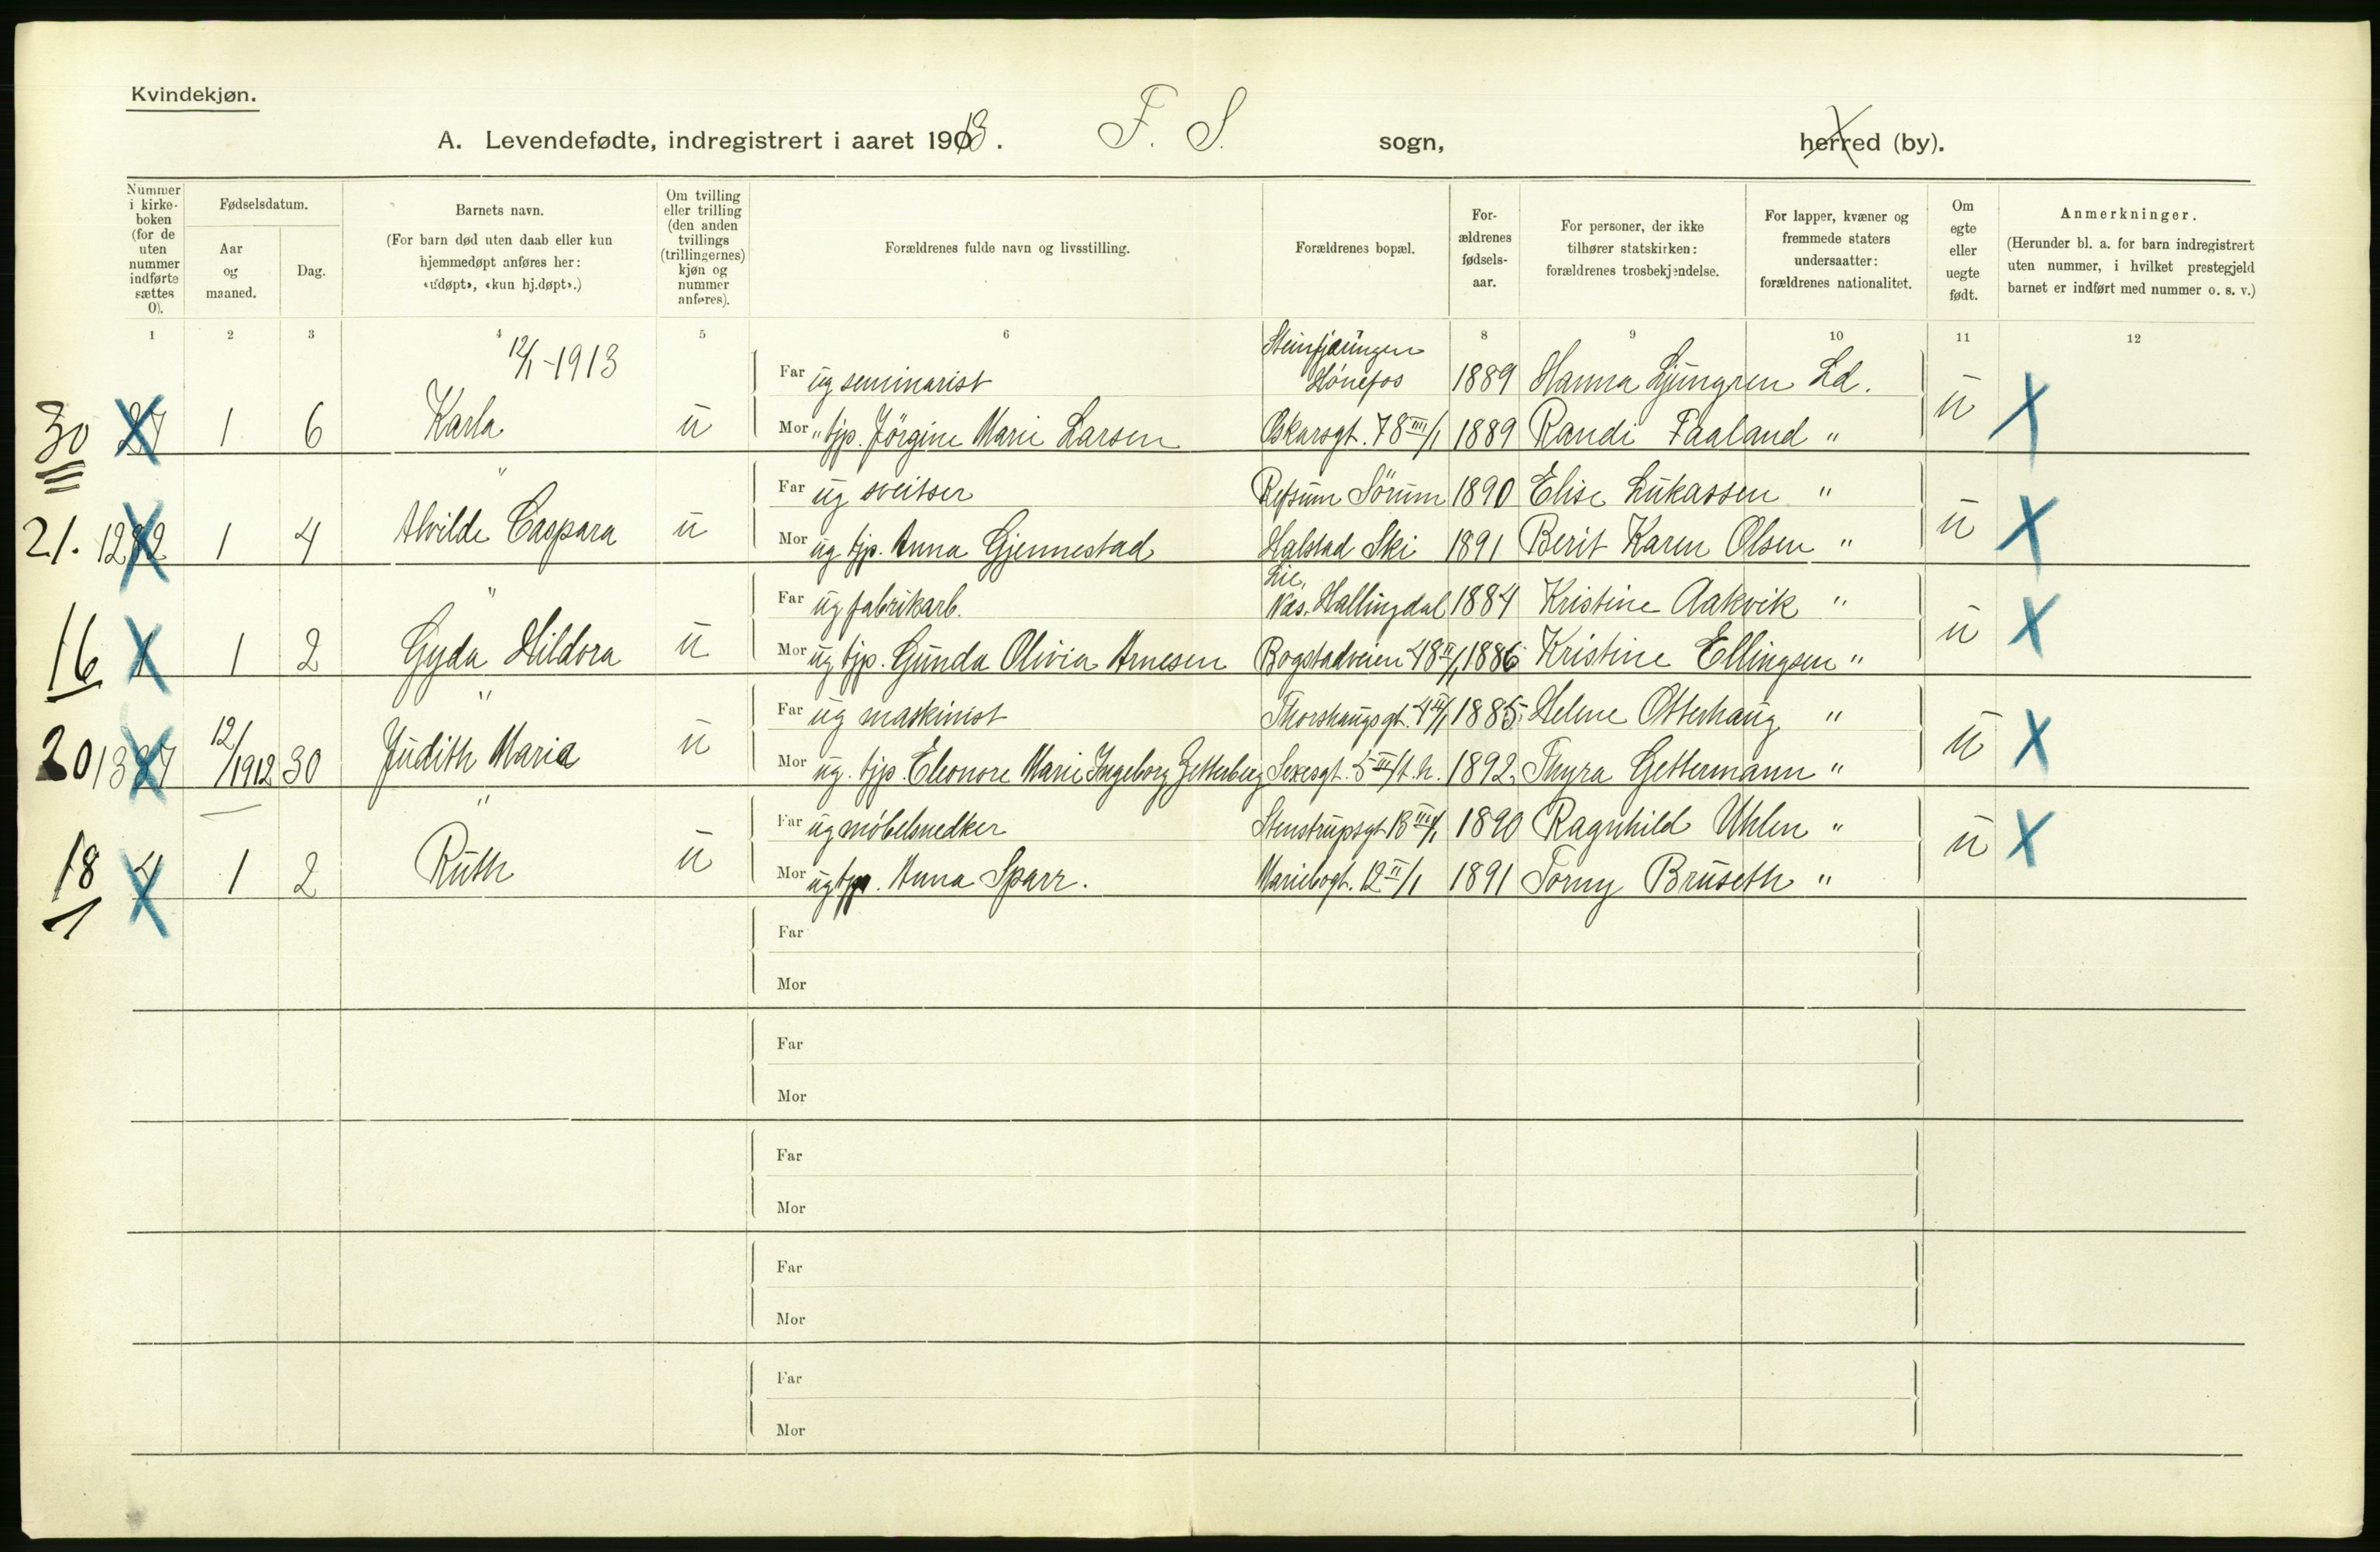 Kvindekjøn.
A. Levendefødte, indregistrert i aaret 1913. F. S. sogn, herred (by).
Nummer i kirke-boken (for de uten nummer indførte sættes 0).
Fødselsdatum.
Aar og maaned.
Dag.
Barnets navn.
(For barn død uten daab eller kun hjemmedøpt anføres her: «udøpt», «kun hj.døpt».)
Om tvilling eller trilling (den anden tvillings (trillingernes) kjøn og nummer anføres).
Forældrenes fulde navn og livsstilling.
Forældrenes bopæl.
For-ældrenes fødsels-aar.
For personer, der ikke tilhører statskirken: forældrenes trosbekjendelse.
For lapper, kvæner og fremmede staters undersaatter: forældrenes nationalitet.
Om egte eller uegte født.
Anmerkninger.
(Herunder bl. a. for barn indregistrert uten nummer, i hvilket prestegjeld barnet er indført med nummer o. s. v.)
1 2 3 4 5 6 8 9 10 11 12
12/1-1913
Far ug seminarist Hönefos 1889 Hanna Ljungren Ld.
30 27 1 6 Karla u Mor „ tjp. Jörgine Marie Larsen Oskarsgt. 78 III/1 1889 Randi Faaland " u X
"
Far ug sveitser Refsum Sörum 1890 Elise Lukassen "
21. 1 4 Alvilde Caspara u Mor ug tjp. Anna Gjennestad Halstad Ski 1891 Berit Karen Olsen " u X
"
Far ug fabrikarb. Lie, Næs. Hallingdal 1884 Kristine Aakvik "
16 1 1 2 Gyda Hildora u Mor ug tjp. Gunda Olivia Arnesen Bogstadveien 48 II/1 1886 Kristine Ellingsen " u X
"
Far ug maskinist Thorshaugsgt. 4 II/1 1885 Helene Otterhaug "
20 12/1912 30 Judith Maria u Mor ug. tjp. Eleonore Marie Ingeborg Zetterberg Sexesgt. 5 III/t.h. 1892 Thyra Gettermann " u X
"
Far ug möbelsnedker Stenstrupsgt 13 III/1 1890 Ragnhild Uhlen "
18 4 1 2 Ruth u Mor ug tjp. Anna Sparr. Mariebogt. 12 II/1 1891 Tomy Bruseth " u X
Far
Mor
Far
Mor
Far
Mor
Far
Mor
Far
Mor